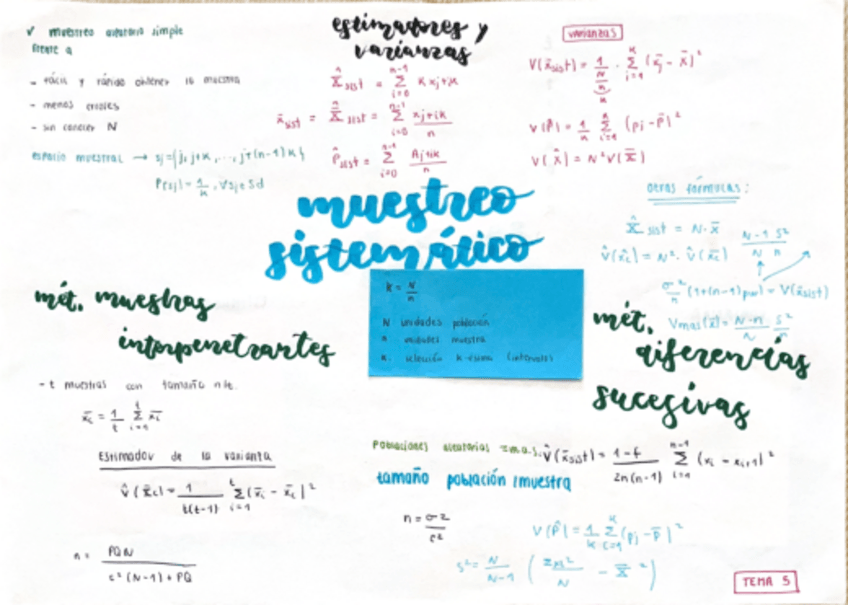 ✓ muestreo aleatorio simple
frente a
- fácil y rápido obtener la muestra
- menos errores
- sin conocer N
espacio muestral → sj={j, j+k, ..., j+(n-1)k}
P(sj)=1/k, ∀sj∈Sd
estimadores y
varianzas
X̂sist = Σ_{i=0}^{n-1} K xj+ik
x̂sist = X̄̂sist = Σ_{i=0}^{n-1} xj+ik/n
P̂sist = Σ_{i=0}^{n-1} Aj+ik/n
varianzas
V(x̄sist) = 1/(N/n) · Σ_{i=1}^{k} (x̄j - X̄)²
V(P̂) = 1/k Σ_{i=1}^{k} (pj - P̄)²
V(X̂) = N²V(X̄)
otras fórmulas:
X̂sist = N·x̄
V̂(x̂c) = N²· V̂(x̄c) N-1/N S²/n
σ²/n (1+(n-1)ρw) = V(x̄sist)
Vmas(x̄) = N-n/N S²/n
muestreo
sistemático
k = N/n
N unidades población
n unidades muestra
K. elección k-ésima (intervalos)
mét. muestras
interpenetrantes
- t muestras con tamaño n/t.
x̄c = 1/t Σ_{i=1}^{t} x̄i
Estimador de la varianza
V̂(x̄c) = 1/t(t-1) Σ_{i=1}^{t} (x̄i - x̄c)²
n = PQN/e²(N-1)+PQ
mét.
diferencias
sucesivas
Poblaciones aleatorias = m.a.s. V̂(x̄sist) = 1-f/2n(n-1) Σ_{i=1}^{n-1} (xi - xi+1)²
tamaño población/muestra
n = σ2/e²
V(P̂) = 1/k Σ_{i=1}^{k} (pj - P̄)²
S² = N/N-1 (Σxi²/N - X̄²)
TEMA 5